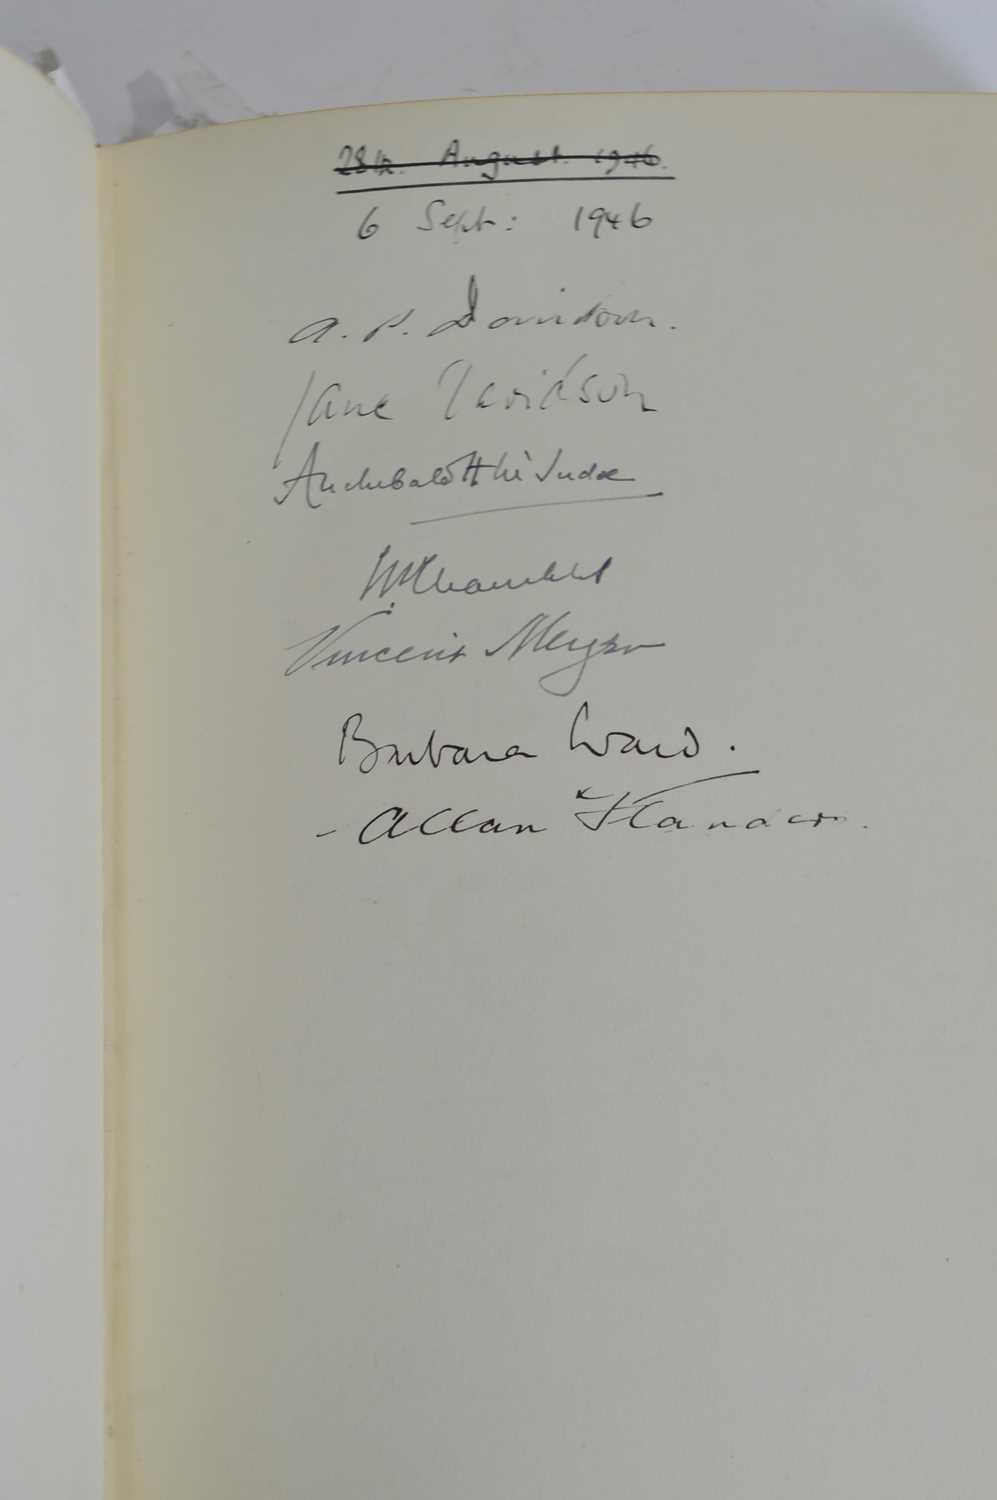 28th. August. 1946.
6 Sept: 1946
A. P. Davidson.
Jane Davidson
Archibald
Vincent Meyer
Barbara Ward.
- Allan Flanders.